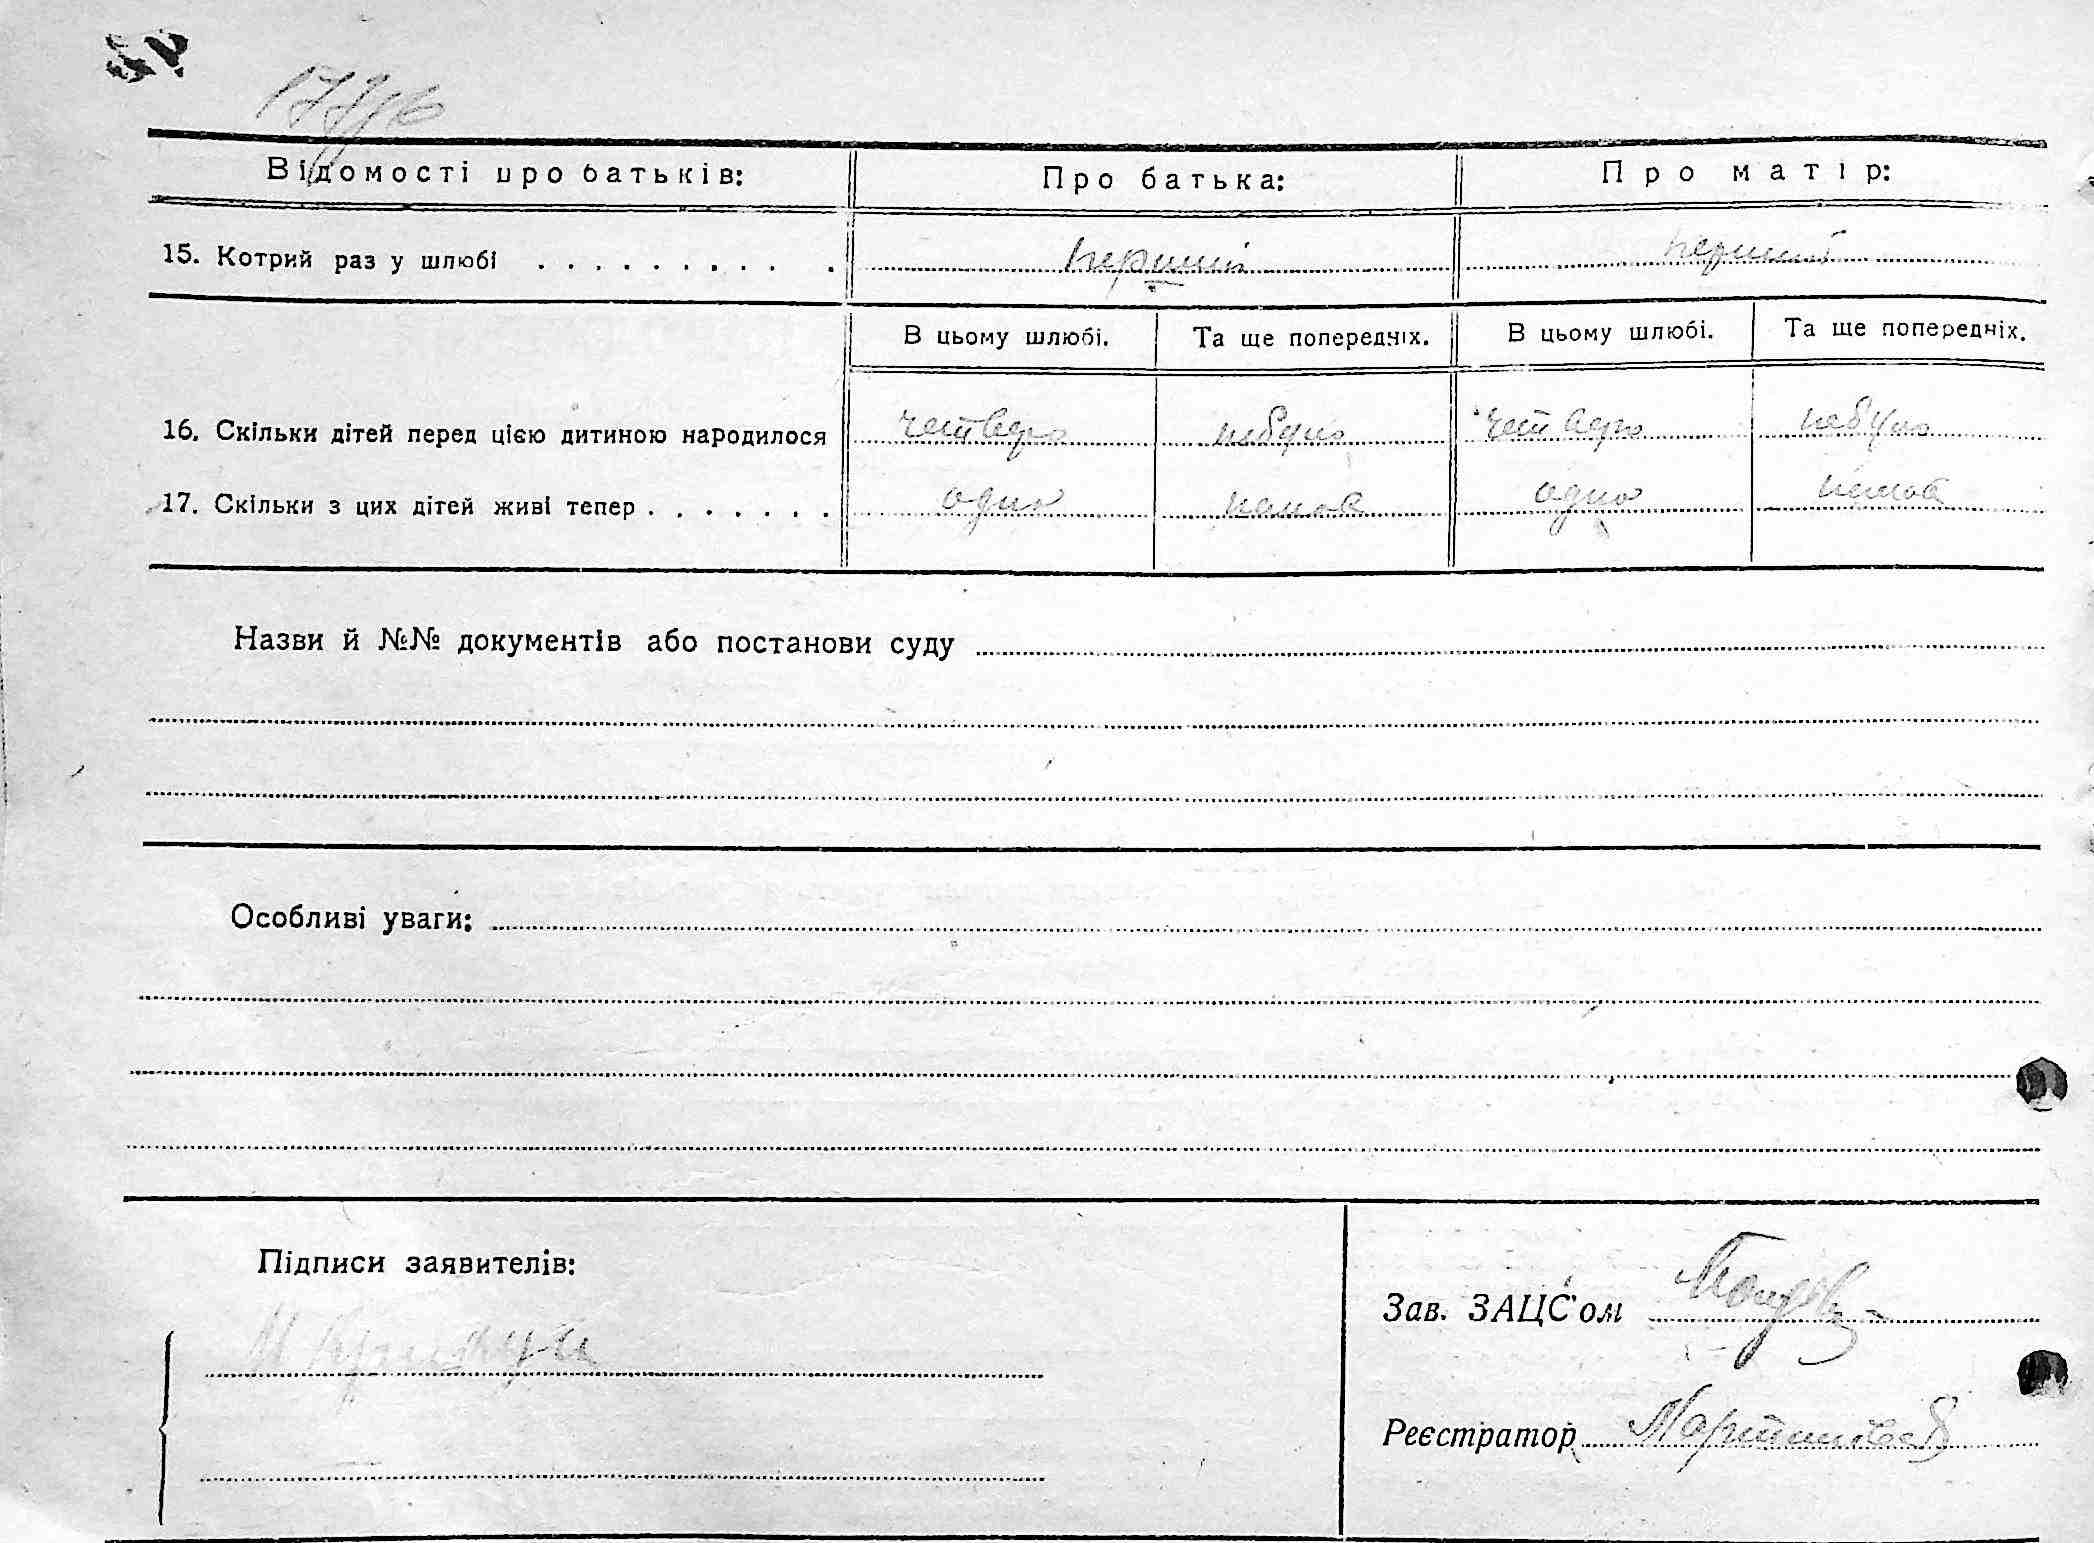 Відомості про батьків: Про батька: Про матір:
15. Котрий раз у шлюбі . . . . . . . . . . перший перший
В цьому шлюбі. Та ще попередніх. В цьому шлюбі. Та ще попередніх.
16. Скільки дітей перед цією дитиною народилося четверо небуло четверо небуло
17. Скільки з цих дітей живі тепер . . . . . . . одно немає одно немає
Назви й №№ документів або постанови суду
Особливі уваги:
Підписи заявителів:
Зав. ЗАЦС'ом
Реєстратор